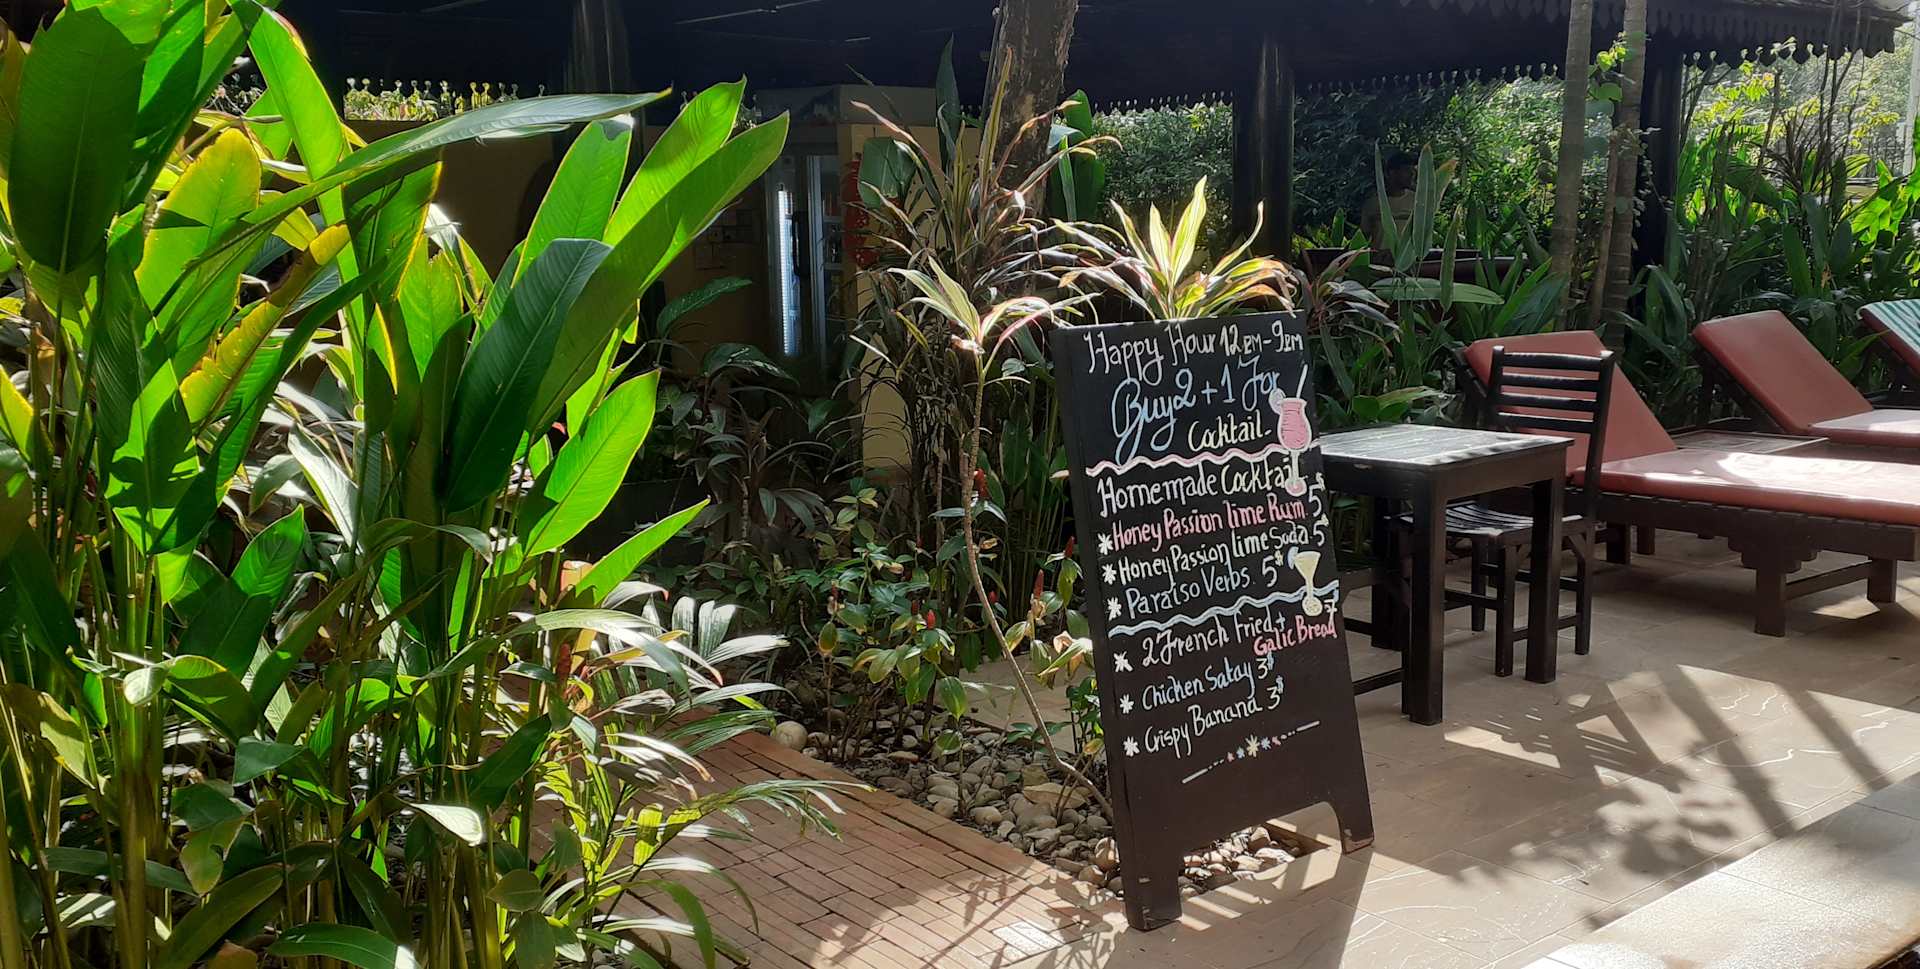 Happy Hour 12PM-9PM
Buy 2 + 1 For
Cocktail-
Homemade Cocktail
Honey Passion lime Rum. 5$
Honey Passion Lime Soda. 5$
Paraiso Verbs. 5$
2 French Fried + 7
Galic Bread
Chicken Satay 3$
Crispy Banana 3$